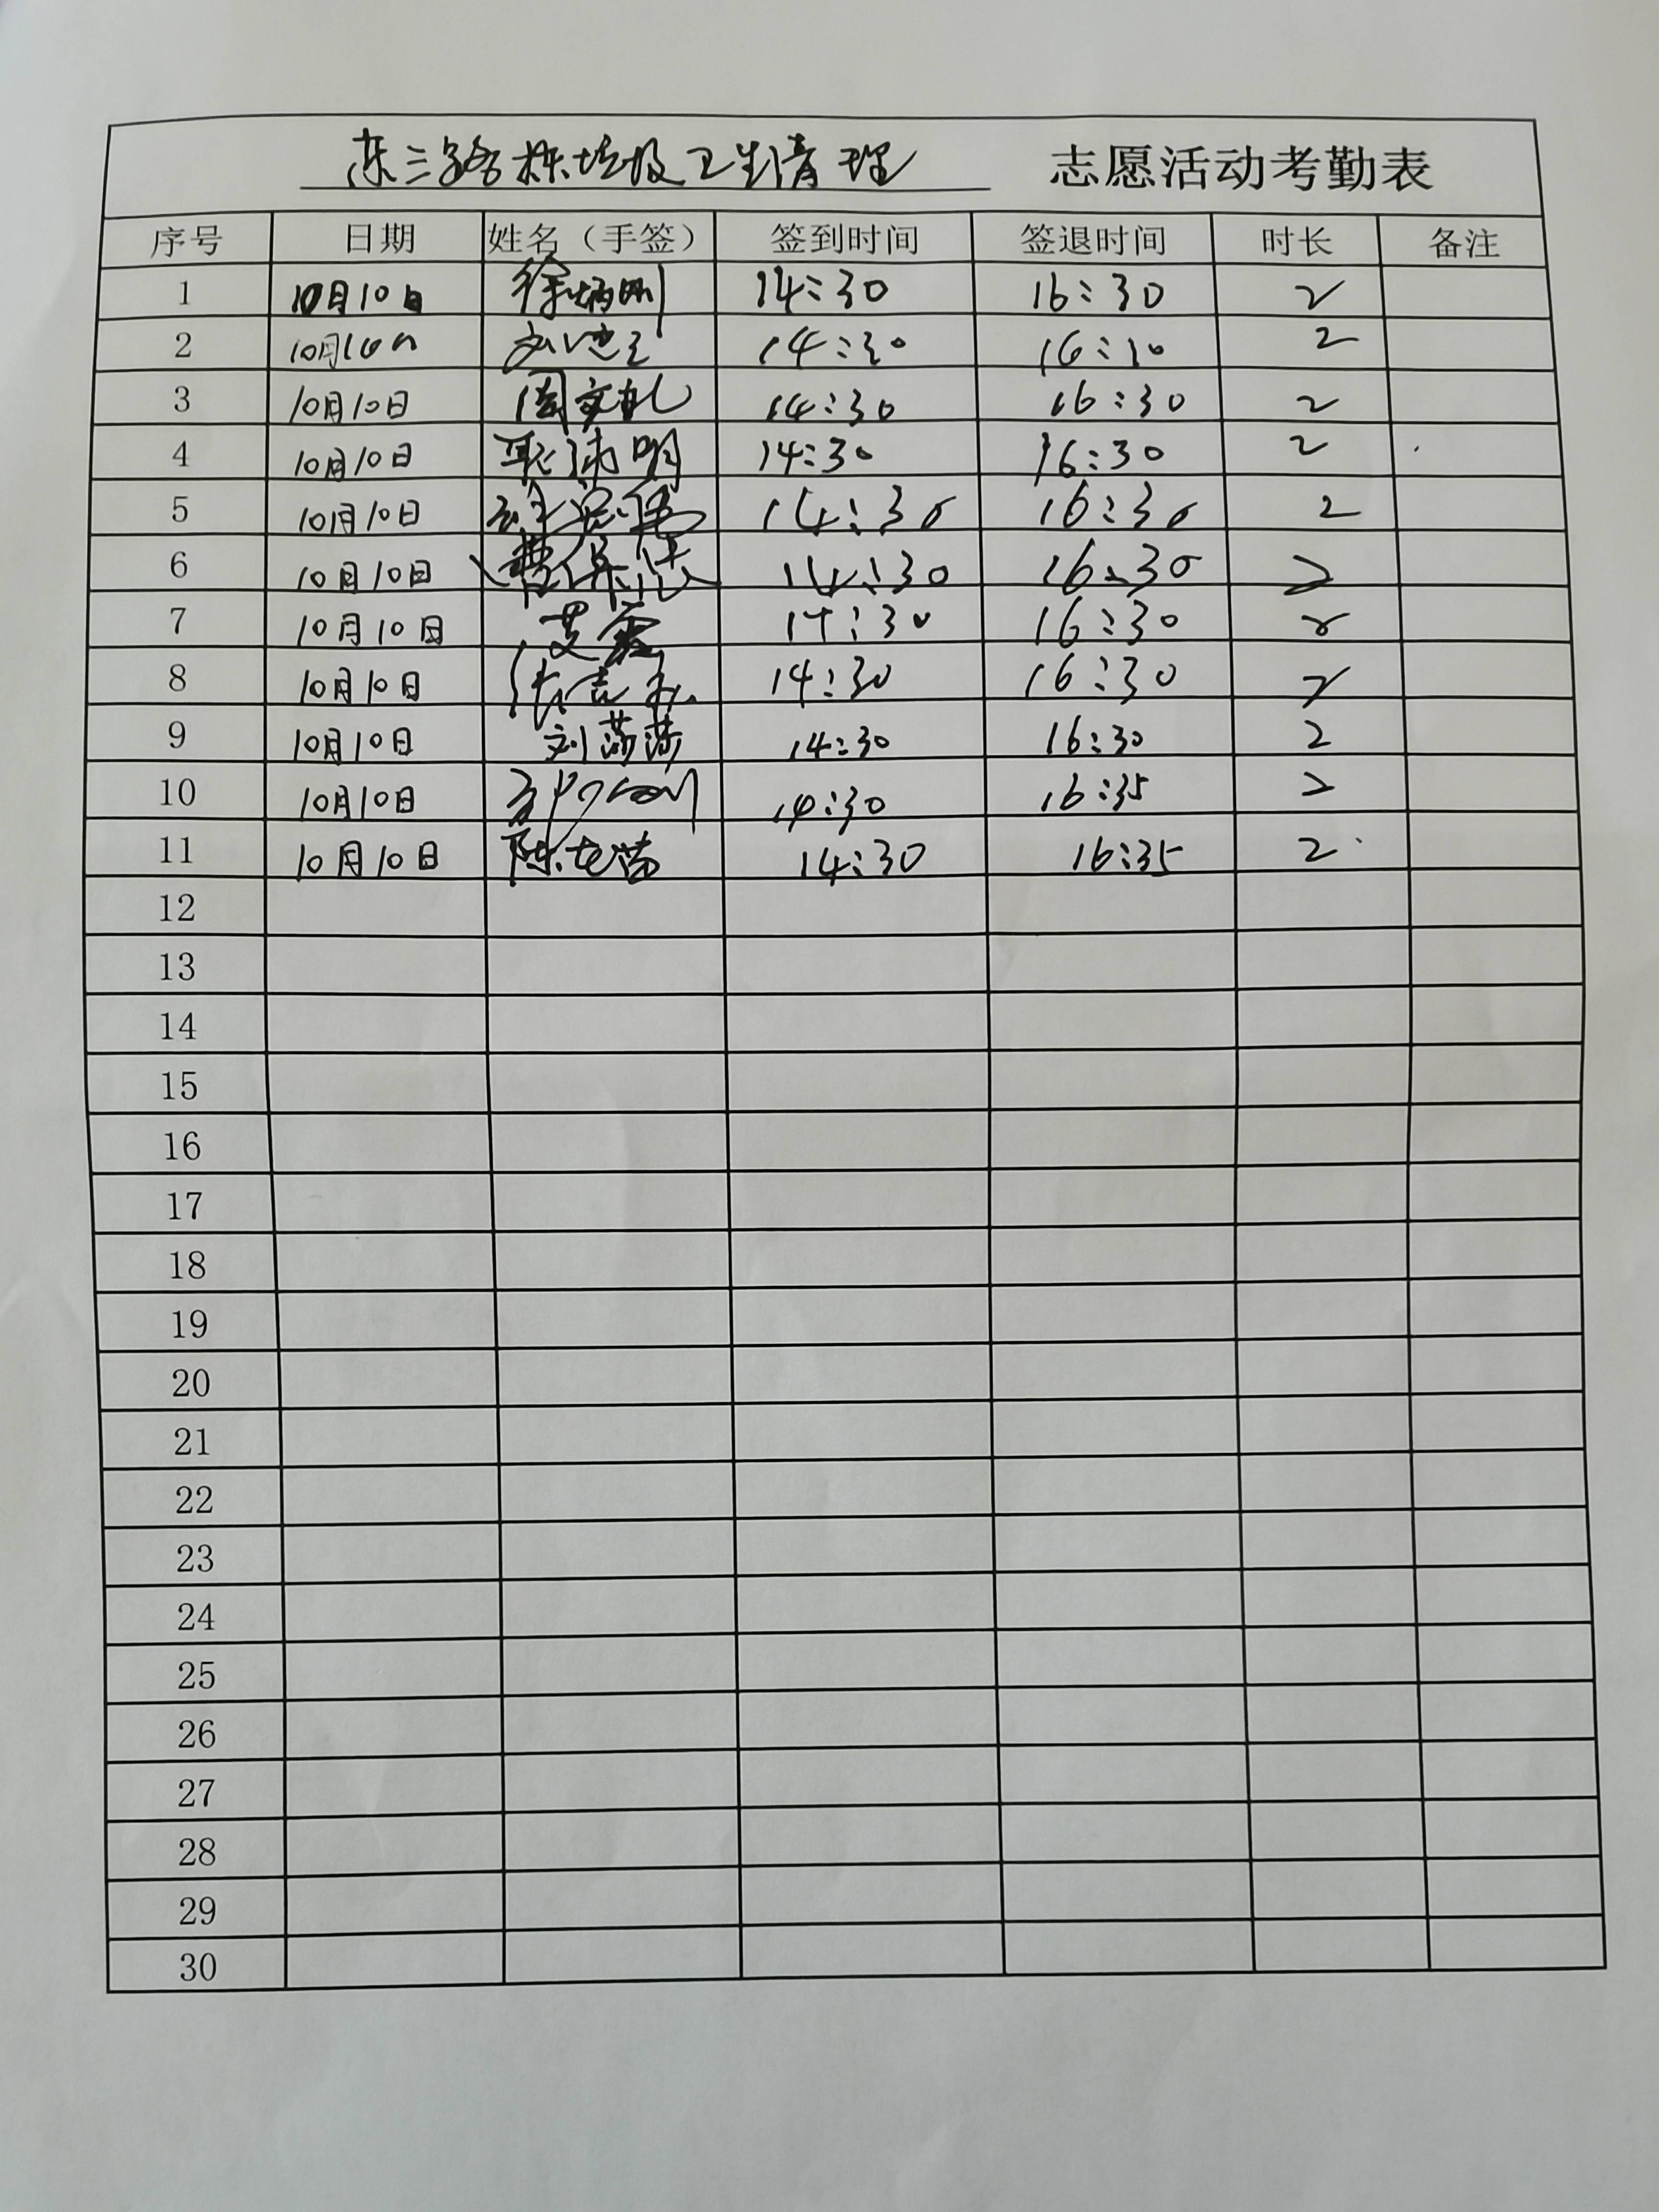 东三路捡垃圾卫生清理 志愿活动考勤表
序号 日期 姓名（手签） 签到时间 签退时间 时长 备注
1 10月10日 徐炳刚 14:30 16:30 2
2 10月10日 14:30 16:30 2
3 10月10日 周文 14:30 16:30 2
4 10月10日 耿 明 14:30 16:30 2
5 10月10日 14:30 16:30 2
6 10月10日 14:30 16:30 2
7 10月10日 艾霞 14:30 16:30 2
8 10月10日 14:30 16:30 2
9 10月10日 刘莎莎 14:30 16:30 2
10 10月10日 14:30 16:35 2
11 10月10日 陈 14:30 16:35 2
12
13
14
15
16
17
18
19
20
21
22
23
24
25
26
27
28
29
30